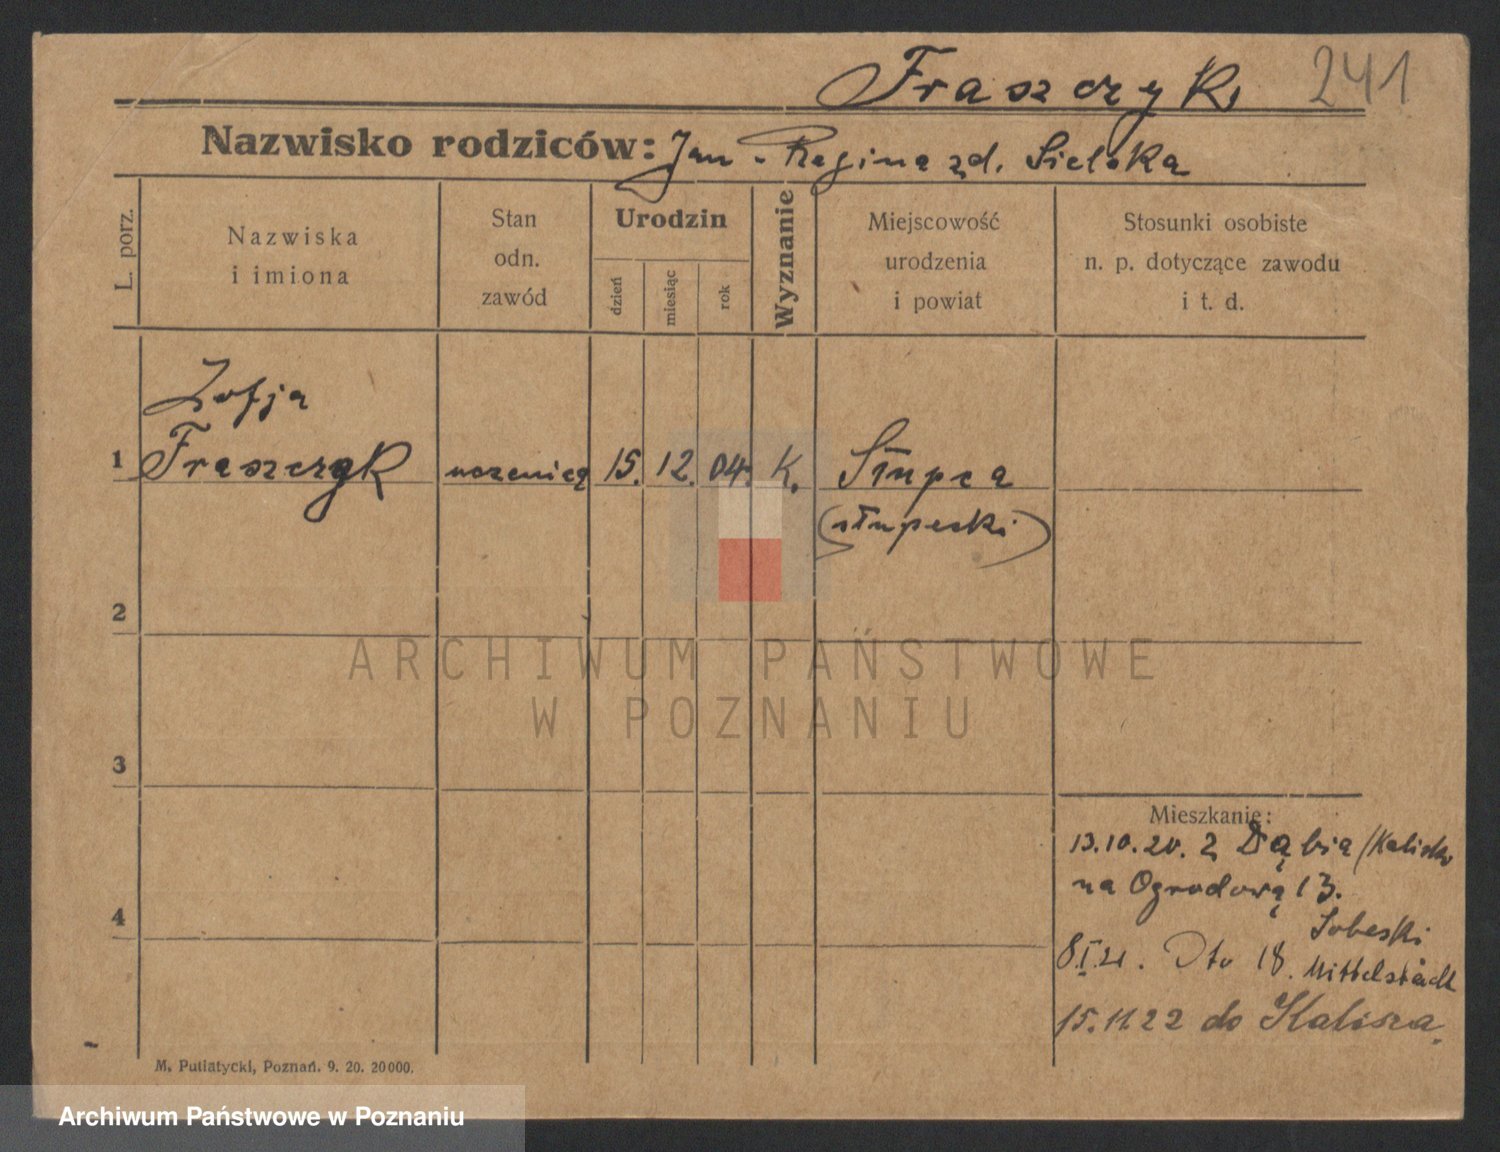 Fraszczyk 241
Nazwisko rodziców: Jan - Regina zd. Sielska
L. porz.
Nazwiska
i imiona
Stan
odn.
zawód
Urodzin
dzień
miesiąc
rok
Wyznanie
Miejscowość
urodzenia
i powiat
Stosunki osobiste
n. p. dotyczące zawodu
i t. d.
Zofja
1 Fraszczyk uczenica 15. 12. 04. K. Słupca
(słupecki)
2
ARCHIWUM PAŃSTWOWE
W POZNANIU
3
Mieszkanie:
13.10.20. z Dąbia (Kalisko
na Ogrodową 13.
4
Sobeski
8.I.21. Dto 18. Mittelstädt
15.11.22 do Kalisza.
M. Putiatycki, Poznań. 9. 20. 20000.
Archiwum Państwowe w Poznaniu